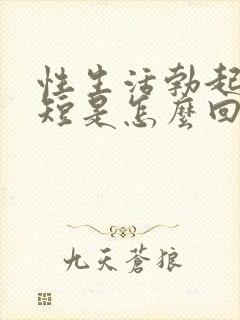 性生活勃起
短是怎麼回
九天蒼狼